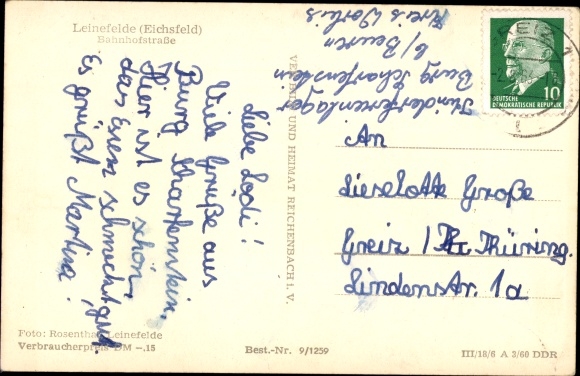 Leinefelde (Eichsfeld)
Bahnhofstraße
Liebe Lodi!
Viele Grüße aus
Burg Scharfenstein.
Hier ist es schön,
das Essen schmeckt gut.
Es grüßt Martina!
Kinderferienlager
Burg Scharfenstein
b/ Beuren
Kreis Worbis
VERLAG BILD UND HEIMAT REICHENBACH i. V.
DEUTSCHE
DEMOKRATISCHE REPUBLIK
10
GREIZ 1
An
Lieselotte Große
Greiz / Thüring.
Lindenstr. 1a
Foto: Rosenthal, Leinefelde
Verbraucherpreis DM –.15
Best.-Nr. 9/1259
III/18/6 A 3/60 DDR